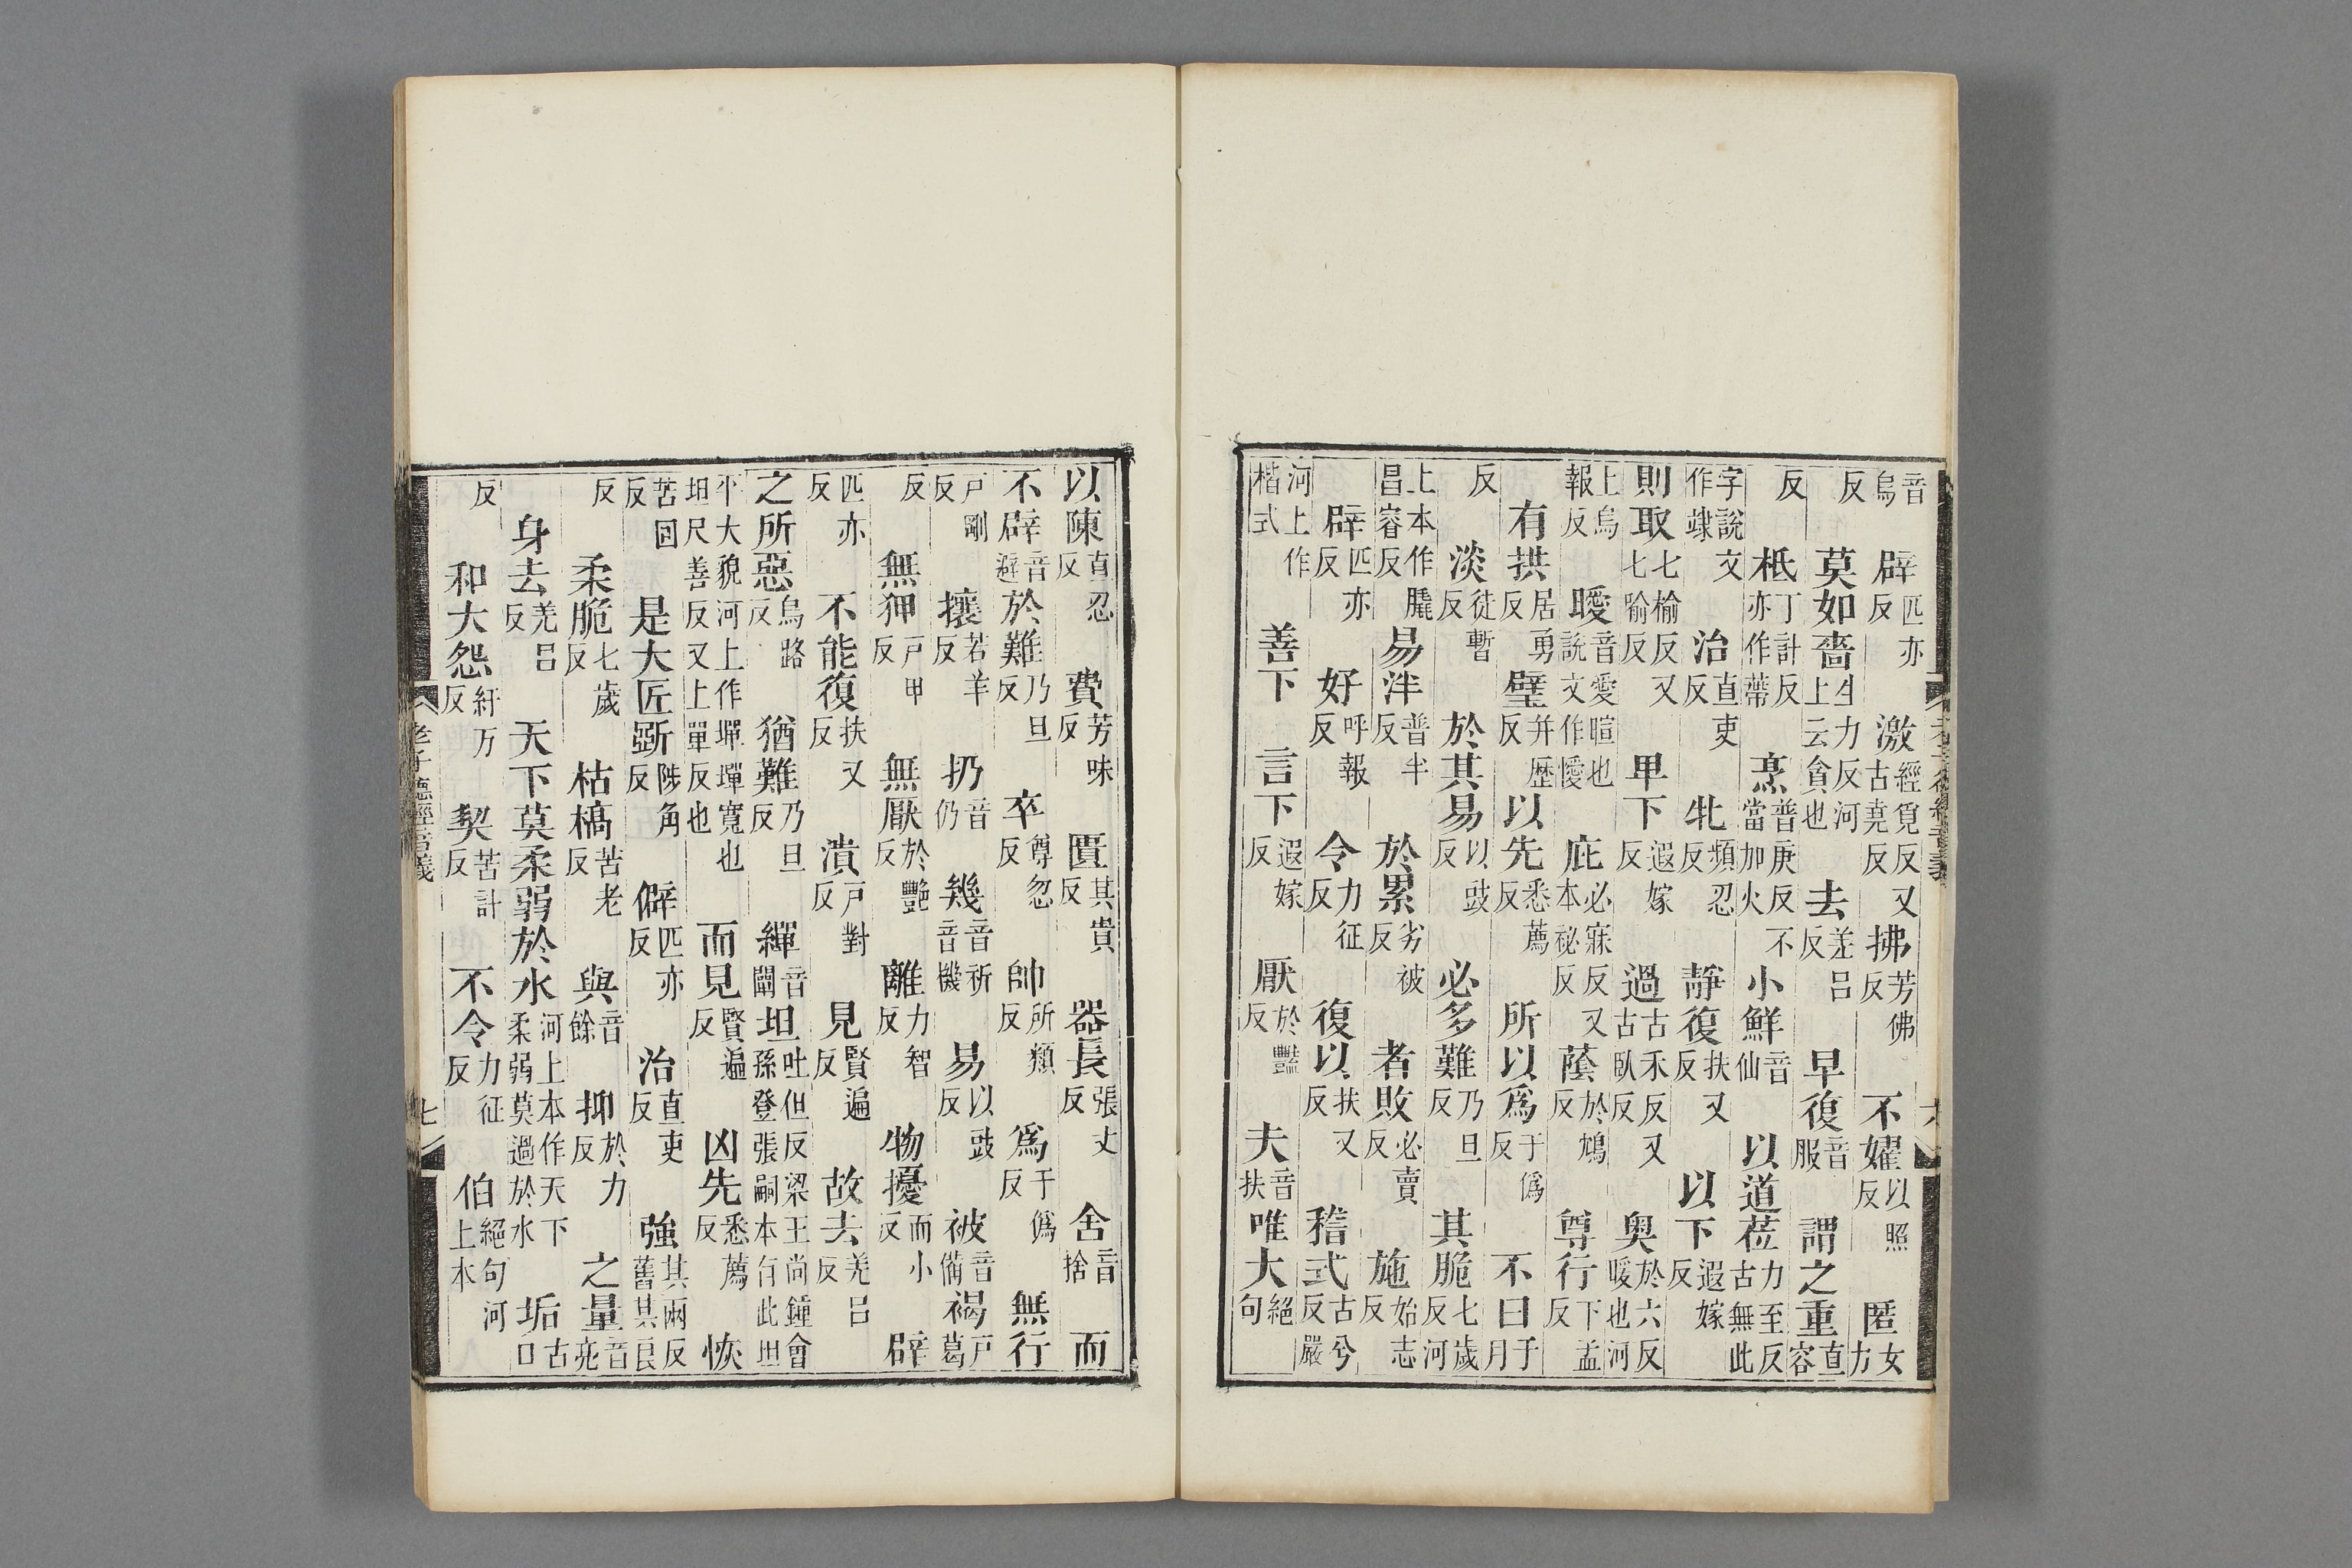 音烏反 辟匹亦反 激經覓反又古堯反 拂芳佛反 不嬥以照反 匿女力
反 莫如嗇生力反河上云貪也 去羌呂反 早復音服 謂之重直容
反 柢丁計反亦作蔕 烹普庚反不當加火 小鮮音仙 以道莅力至反古無此
字說文作𨽸 治直吏反 牝頻忍反 靜復扶又反 以下遐嫁反
則取七榆反又七喻反 卑下遐嫁反 過古禾反又古臥反 奥於六反暖也河
上烏報反 曖音愛暄也說文作僾 庇必寐反又本祕反 蔭於鴆反 尊行下孟反
有拱居勇反 璧并歷反 以先悉薦反 所以爲于僞反 不日于月
反 淡徒暫反 於其易以豉反 必多難乃旦反 其脆七歲反河
上本作膬昌睿反 易泮普半反 於累劣被反 者敗必賣反 施始志反
辟匹亦反 好呼報反 令力征反 復以扶又反 稽式古兮反嚴
河上作楷式 善下 言下遐嫁反 厭於豔反 夫音扶 唯大絕句
以陳直忍反 費芳味反 匱其貴反 器長張丈反 舍音捨 而
不辟音避 於難乃旦反 卒尊忽反 帥所類反 爲于僞反 無行
戸剛反 攘若羊反 扔音仍 幾音祈音機 易以豉反 被音備 褐戸葛
反 無狎戸甲反 無厭於豔反 離力智反 物擾而小反 辟
匹亦反 不能復扶又反 潰戸對反 見賢遍反 故去羌呂反
之所惡烏路反 猶難乃旦反 繟音闡 坦吐但反梁王尚鍾會孫登張嗣本有此坦
平大貌河上作墠墠寬也坦尺善反又上單反也 而見賢遍反 凶先悉薦反 恢
苦回反 是大匠斲陟角反 僻匹亦反 治直吏反 強其兩反舊其良
反 柔脆七歲反 枯槁苦老反 與音餘 抑於力反 之量音亮
身去羌呂反 天下莫柔弱於水河上本作天下柔弱莫過於水 垢古口
反 和大怨紆万反 契苦計反 不令力征反 伯絕句河上本
老子德經音義 七